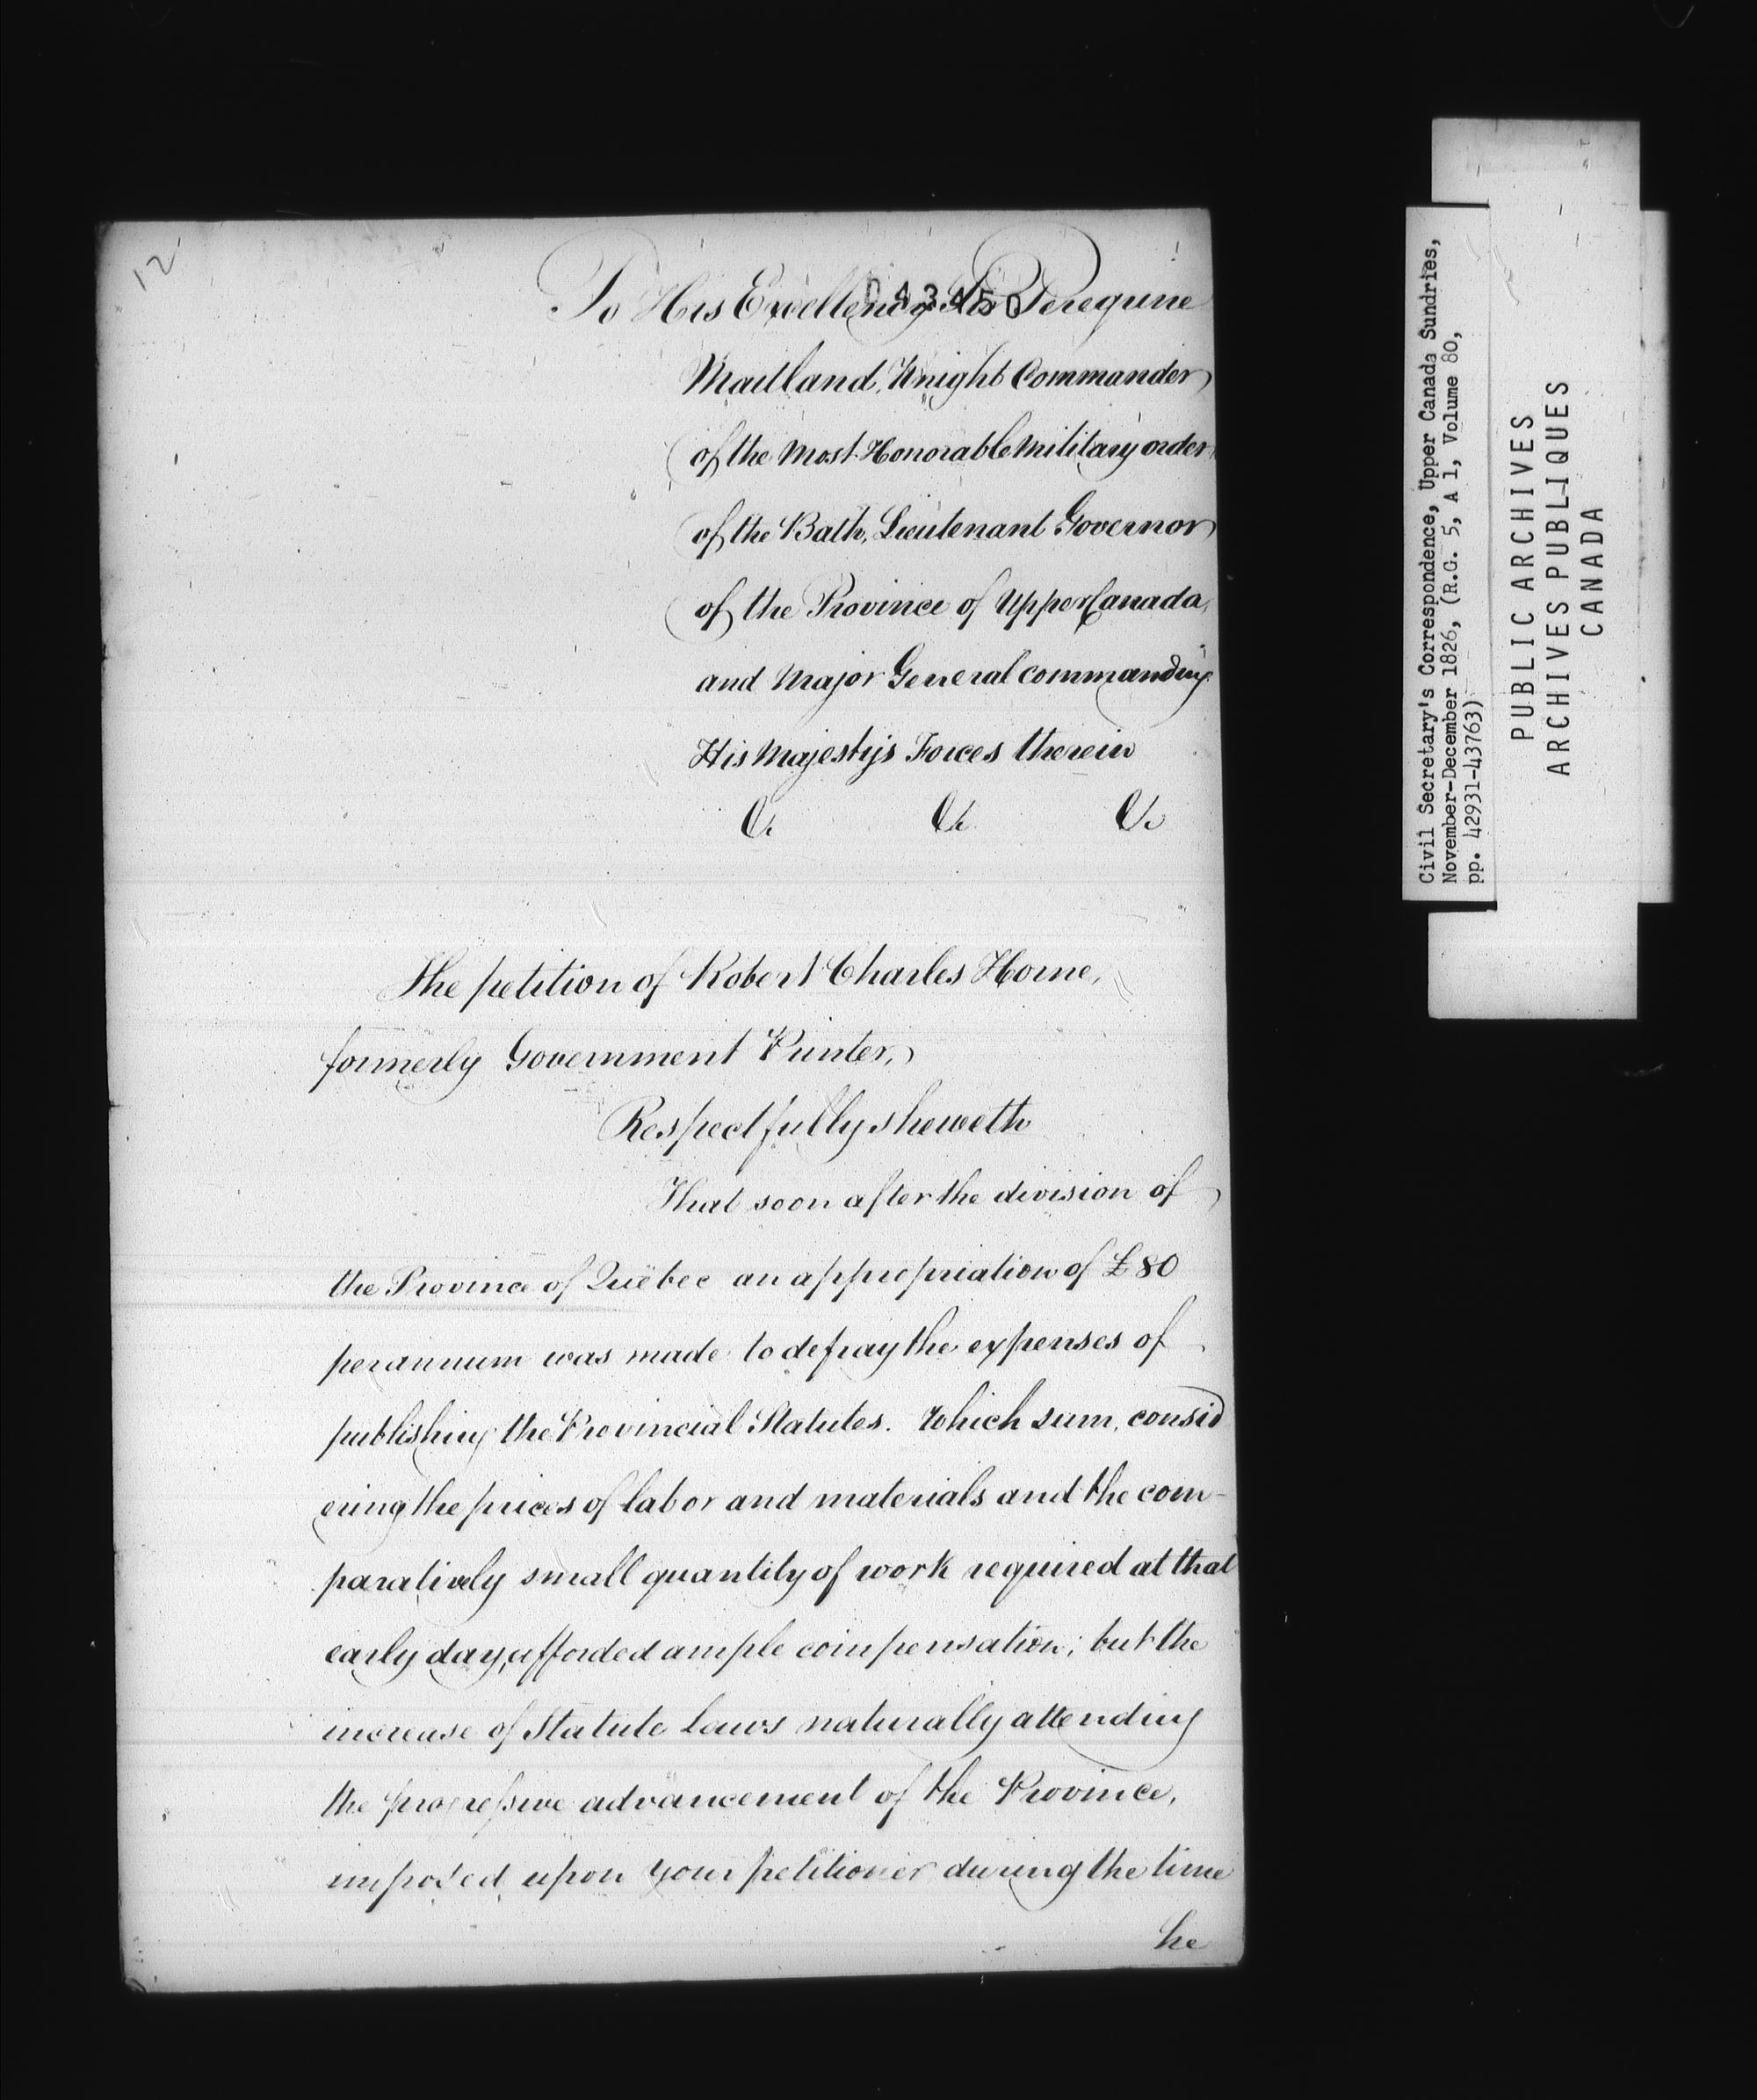 12
043450
To His Excellency Sir Peregrine
Maitland, Knight Commander
of the Most Honorable Military order
of the Bath, Lieutenant Governor
of the Province of Upper Canada,
and Major General commanding
His Majesty's Forces therein
&c &c &c
The petition of Robert Charles Horne,
formerly Government Printer,
Respectfully sheweth
That soon after the division of
the Province of Quebec an appropriation of £80
per annum was made to defray the expenses of
publishing the Provincial Statutes. Which sum, consid
ering the prices of labor and materials and the com-
paratively small quantity of work required at that
early day, afforded ample compensation; but the
increase of Statute Laws naturally attending
the progressive advancement of the Province,
imposed upon your petitioner during the time
he
Civil Secretary's Correspondence, Upper Canada Sundries,
November-December 1826, (R.G. 5, A 1, Volume 80,
pp. 42931-43763)
PUBLIC ARCHIVES
ARCHIVES PUBLIQUES
CANADA